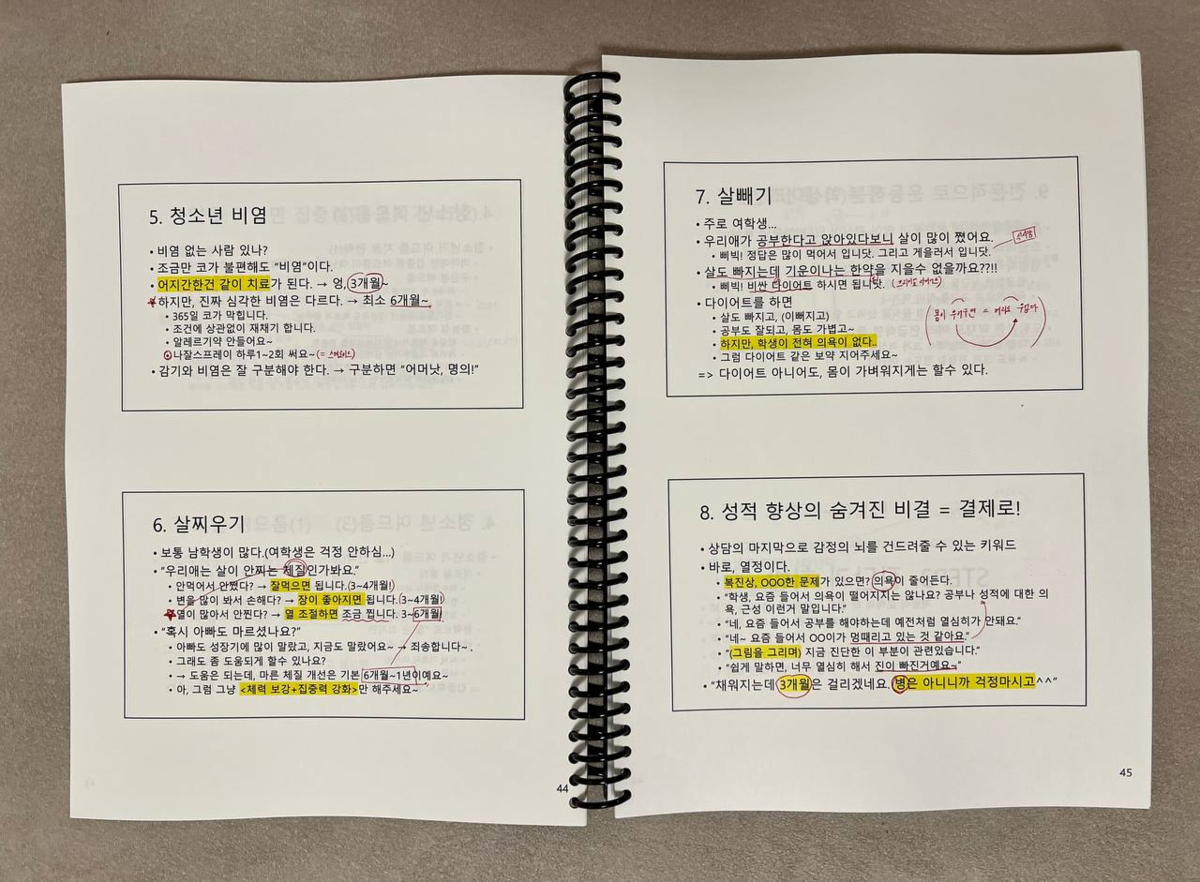 5. 청소년 비염
• 비염 없는 사람 있나?
• 조금만 코가 불편해도 "비염"이다.
• 어지간한건 같이 치료가 된다. → 엉, 3개월~
• 하지만, 진짜 심각한 비염은 다르다. → 최소 6개월~
• 365일 코가 막힙니다.
• 조건에 상관없이 재채기 합니다.
• 알레르기약 안들어요~
• 나잘스프레이 하루1~2회 써요~
• 감기와 비염은 잘 구분해야 한다. → 구분하면 "어머낫, 명의!"
6. 살찌우기
• 보통 남학생이 많다.(여학생은 걱정 안하심...)
• "우리애는 살이 안찌는 체질인가봐요."
• 안먹어서 안쪘다? → 잘먹으면 됩니다.(3~4개월!)
• 변을 많이 봐서 손해다? → 장이 좋아지면 됩니다.(3~4개월)
• 열이 많아서 안찐다? → 열 조절하면 조금 찝니다. 3~6개월
• "혹시 아빠도 마르셨나요?"
• 아빠도 성장기에 많이 말랐고, 지금도 말랐어요~ → 죄송합니다~.
• 그래도 좀 도움되게 할수 있나요?
• → 도움은 되는데, 마른 체질 개선은 기본 6개월~1년이예요~
• 아, 그럼 그냥 <체력 보강+집중력 강화>만 해주세요~
44
7. 살빼기
• 주로 여학생...
• 우리애가 공부한다고 앉아있다보니 살이 많이 쪘어요.
• 삐빅! 정답은 많이 먹어서 입니닷. 그리고 게을러서 입니닷.
• 살도 빠지는데 기운이나는 한약을 지을수 없을까요??!!
• 삐빅! 비싼 다이어트 하시면 됩니닷.
• 다이어트를 하면
• 살도 빠지고, (이뻐지고)
• 공부도 잘되고, 몸도 가볍고~
• 하지만, 학생이 전혀 의욕이 없다.
• 그럼 다이어트 같은 보약 지어주세요~
=> 다이어트 아니어도, 몸이 가벼워지게는 할수 있다.
8. 성적 향상의 숨겨진 비결 = 결제로!
• 상담의 마지막으로 감정의 뇌를 건드려줄 수 있는 키워드
• 바로, 열정이다.
• 복진상, OOO한 문제가 있으면? 의욕이 줄어든다.
• "학생, 요즘 들어서 의욕이 떨어지지는 않나요? 공부나 성적에 대한 의
욕, 근성 이런거 말입니다."
• "네, 요즘 들어서 공부를 해야하는데 예전처럼 열심히가 안돼요."
• "네~ 요즘 들어서 OO이가 멍때리고 있는 것 같아요."
• "(그림을 그리며) 지금 진단한 이 부분이 관련있습니다."
• "쉽게 말하면, 너무 열심히 해서 진이 빠진거예요~"
• "채워지는데 3개월은 걸리겠네요. 병은 아니니까 걱정마시고^^"
45